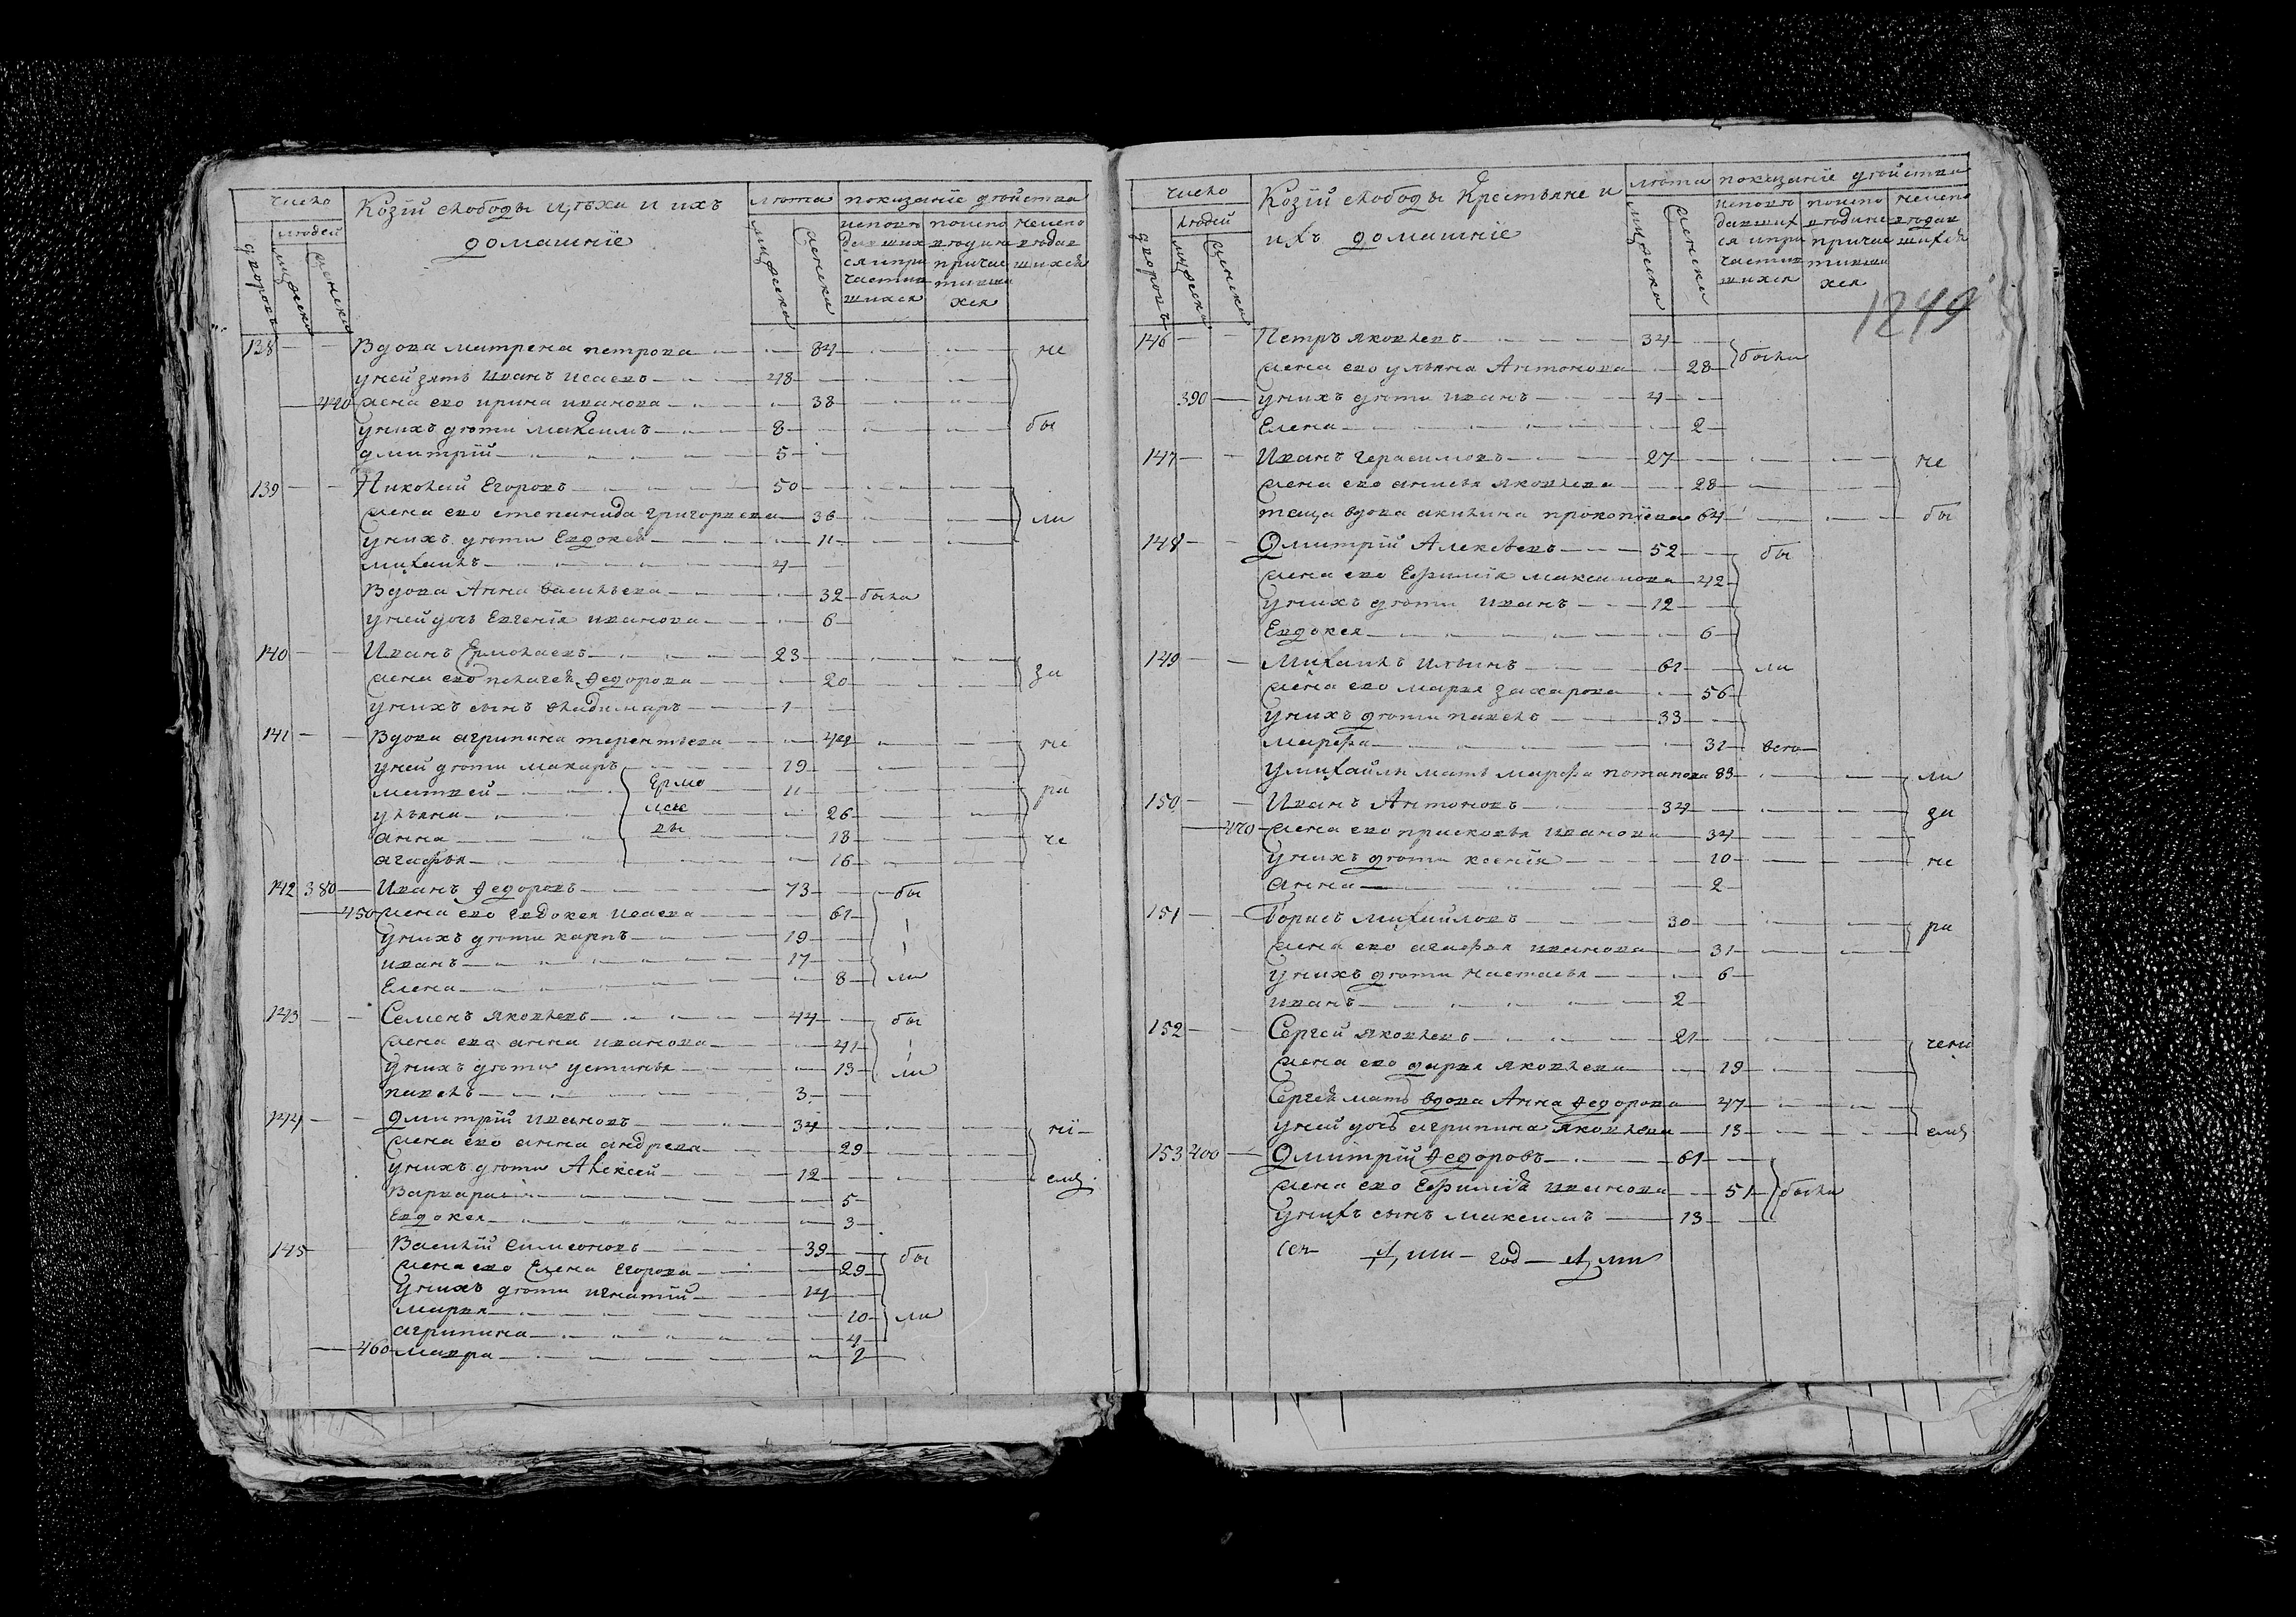 число
людей
дворовъ
мужеска
женска
Козїй слободы и их
домашнїе
лѣта
мужеска
женска
показанїе дѣйства
исповѣ
давших
ся и при
частив
шихся
138 Вдова матрена петрова 84 не
у ней зять иванъ исаевъ 48
440 жена ево ирина иванова 38
у нихъ дѣти максимъ 8 бы
дмитрїй 5
139 Николай Егоровъ 50
жена ево степанида григорьева 36 ли
у нихъ дѣти Евдокея 11
михаилъ 4
Вдова Анна васильева 32 была
у ней дочь Евгенїя иванова 6
140 Иванъ Ермолаевъ 23
жена ево пелагея федорова 20 за
у нихъ сынъ владимиръ 1
141 Вдова агрипина терентьева 44 не
у ней дѣти макаръ 19
матвей 11 ра
ульяна 26
анна 18 че
агафья 16
142 380 Иванъ федоровъ 73 бы
450 жена ево евдокея исаева 61
у нихъ дѣти карпъ 19
иванъ 17
Елена 8 ли
143 Семенъ яковлевъ 44 бы
жена ево анна иванова 41
у нихъ дѣти устинья 13 ли
павелъ 3
144 Дмитрїй ивановъ 34 нї
жена ево анна андреева 29
у нихъ дѣти Алексей 12
Варвара 5
Евдокея 3
145 Василїй симионовъ 39 бы
жена ево Елена Егорова 29
у нихъ дѣти игнатїй 14
марья 10 ли
агрипина 4
460 мавра 2
число
людей
дворовъ
мужеска
женска
Козїй слободы Крестьяне и
ихъ домашнїе
лѣта
мужеска
женска
показанїе дѣйства
исповѣ
давших
ся и при
частив
шихся
1249
146 Петръ яковлевъ 34 были
жена ево ульяна Антонова 28
390 у нихъ дѣти иванъ 4
Елена 2
147 Иванъ герасимовъ 27 не
жена ево анисья яковлева 28
теща вдова акилина прокопїева 64 бы
148 Дмитрїй Алексѣевъ 52 бы
жена ево Ефимїя максимова 42
у нихъ дѣти иванъ 12
Евдокея 6
149 Михаилъ ильинъ 61 ли
жена ево марья захарова 56
у нихъ дѣти павелъ 33
марфа 31
у михайлы мать марфа потапова 83 ли
150 Иванъ Антоновъ 34 за
470 жена ево прасковья иванова 34
у нихъ дѣти ксенїя 10 не
анна 2
151 Борисъ михайловъ 30 ра
жена ево агафья иванова 31
у нихъ дѣти настасья 6
иванъ 2
152 Сергей яковлевъ 21
жена ево дарья яковлева 19
Сергея мать вдова Анна федорова 47
у ней дочь агрипина яковлева 13
153 400 Дмитрїй федоровъ 61
жена ево Ефимїя иванова 51 были
у нихъ сынъ максимъ 13